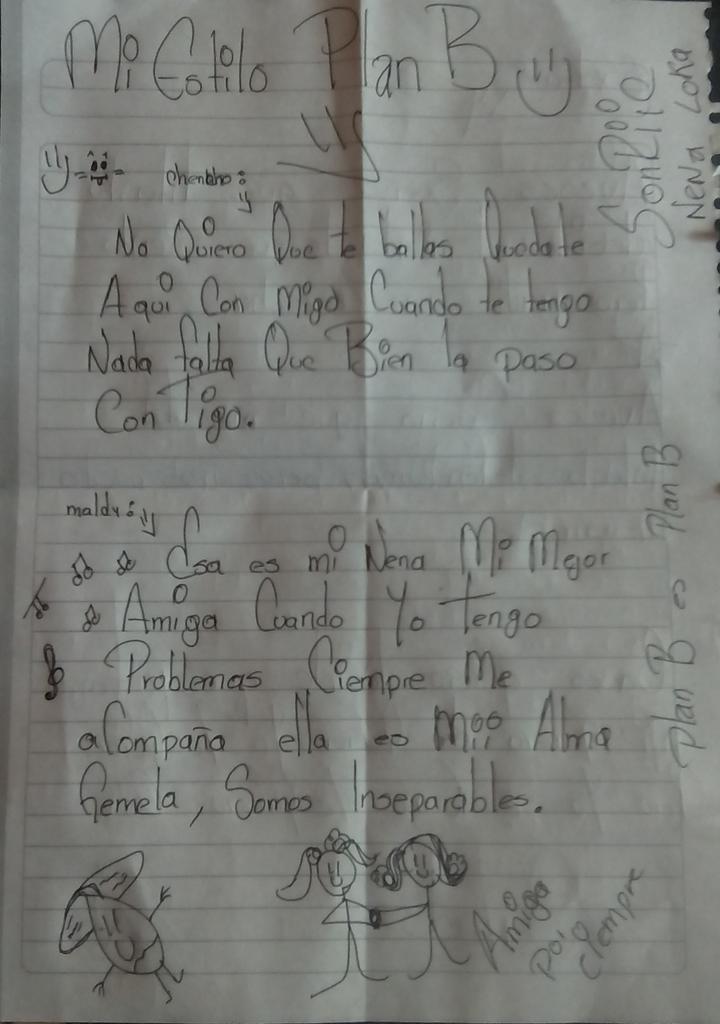 Mi Estilo Plan B
chencho:
No Quiero Que te ballas Quedate
Aqui Con Migo Cuando te tengo
Nada falta Que Bien la paso
Con Tigo.
maldy:
Esa es mi Nena Mi Mejor
Amiga Cuando Yo Tengo
Problemas Ciempre Me
aCompaña ella es Mii Alma
Gemela, Somos Inseparables.
Amiga
poi
ciempre
SonRite
Nena Loka
Plan B Plan B